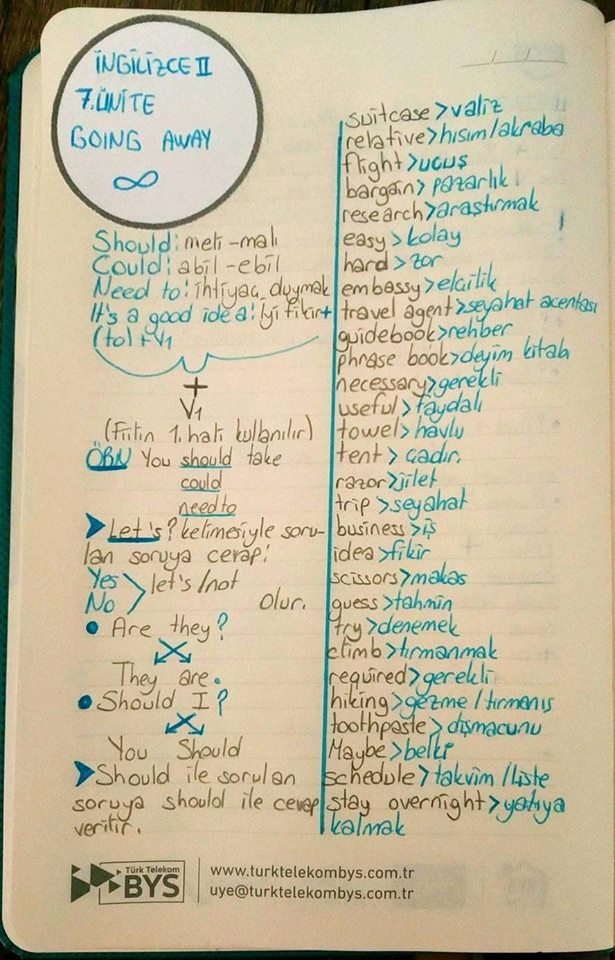 İNGİLİZCE II
7.ÜNİTE
GOING AWAY
∞
Should: meli -malı
Could: abil -ebil
Need to: ihtiyaç duymak
It's a good idea: İyi fikir+
(to) + V1
+
V1
(Fiilin 1. hali kullanılır)
ÖRN You should take
could
need to
➤ Let's? kelimesiyle soru-
lan soruya cevap:
Yes > let's /not
No Olur.
• Are they?
They are.
• Should I?
You Should
➤ Should ile sorulan
soruya should ile cevap
verilir.
suitcase > valiz
relative > hısım/akraba
flight > uçuş
bargain > pazarlık
research > araştırmak
easy > kolay
hard > zor
embassy > elçilik
travel agent > seyahat acentası
guidebook > rehber
phrase book > deyim kitabı
necessary > gerekli
useful > faydalı
towel > havlu
tent > çadır.
razor > jilet
trip > seyahat
business > iş
idea > fikir
scissors > makas
guess > tahmin
try > denemek
climb > tırmanmak
required > gerekli
hiking > gezme / tırmanış
toothpaste > dişmacunu
Maybe > belki
schedule > takvim /liste
stay overnight > yatıya
kalmak
Türk Telekom
BYS
www.turktelekombys.com.tr
uye@turktelekombys.com.tr